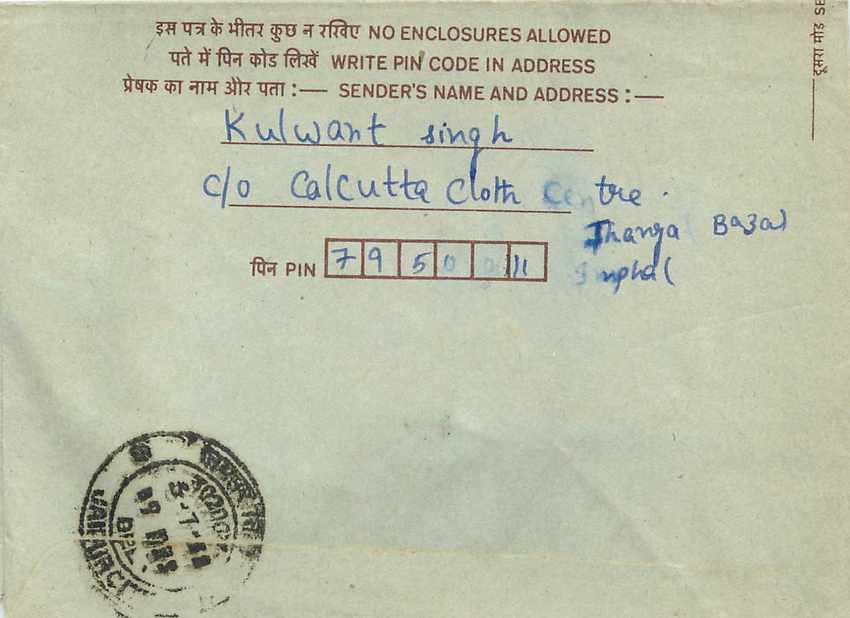 इस पत्र के भीतर कुछ न रखिए NO ENCLOSURES ALLOWED
पते में पिन कोड लिखें WRITE PIN CODE IN ADDRESS
प्रेषक का नाम और पता :— SENDER'S NAME AND ADDRESS :—
Kulwant singh
c/o Calcutta Cloth Centre.
Thangal Bazal
Imphal
पिन PIN 79500
दूसरा मोड़ SE